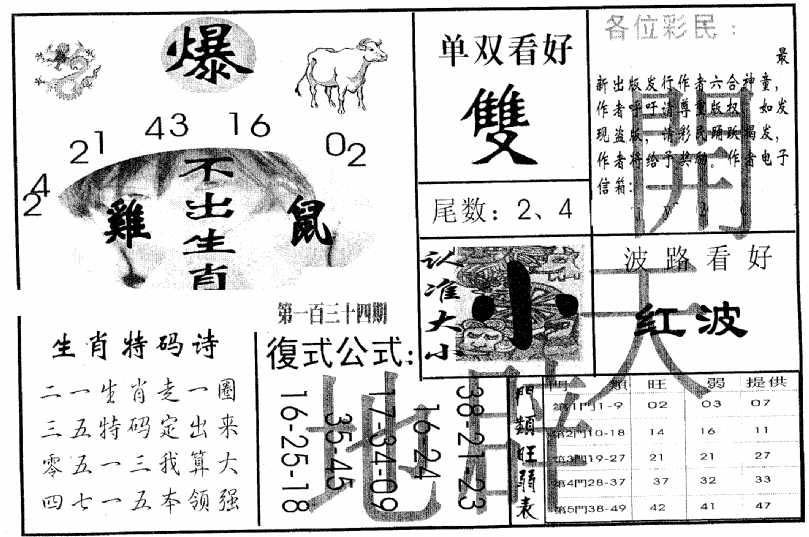 爆
24 21 43 16 02
不出生肖
雞 鼠
单双看好
雙
尾数：2、4
各位彩民：
最
新出版发行作者六合神童，
作者呼吁请尊重版权，如发
现盗版，请彩民踊跃揭发，
作者将给予奖励。作者电子
信箱：
開
天
认准大小
小
波路看好
红波
生肖特码诗
二一生肖走一圈
三五特码定出来
零五一三我算大
四七一五本领强
第一百三十四期
復式公式：
38-21-23
16-24
17-34-09
35-45
16-25-18
地
門類旺弱表
門類 旺 弱 提供
第1門1-9 02 03 07
第2門10-18 14 16 11
第3門19-27 21 21 27
第4門28-37 37 32 33
第5門38-49 42 41 47